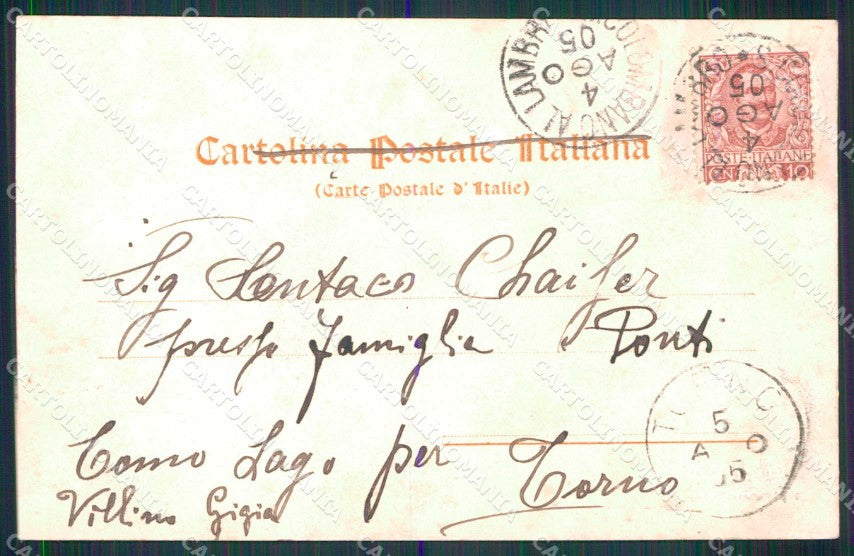 S. COLOMBANO AL LAMBRO
4
AGO
05
S. COLOMBANO AL LAMBRO
4
AGO
05
POSTE·ITALIANE
Cartolina Postale Italiana
(Carte Postale d'Italie)
Sig Chaifer
presso famiglia Ponti
Como Lago per Torno
Villino Gigia
TORNO
5
A O
05
CARTOLINOMANIA